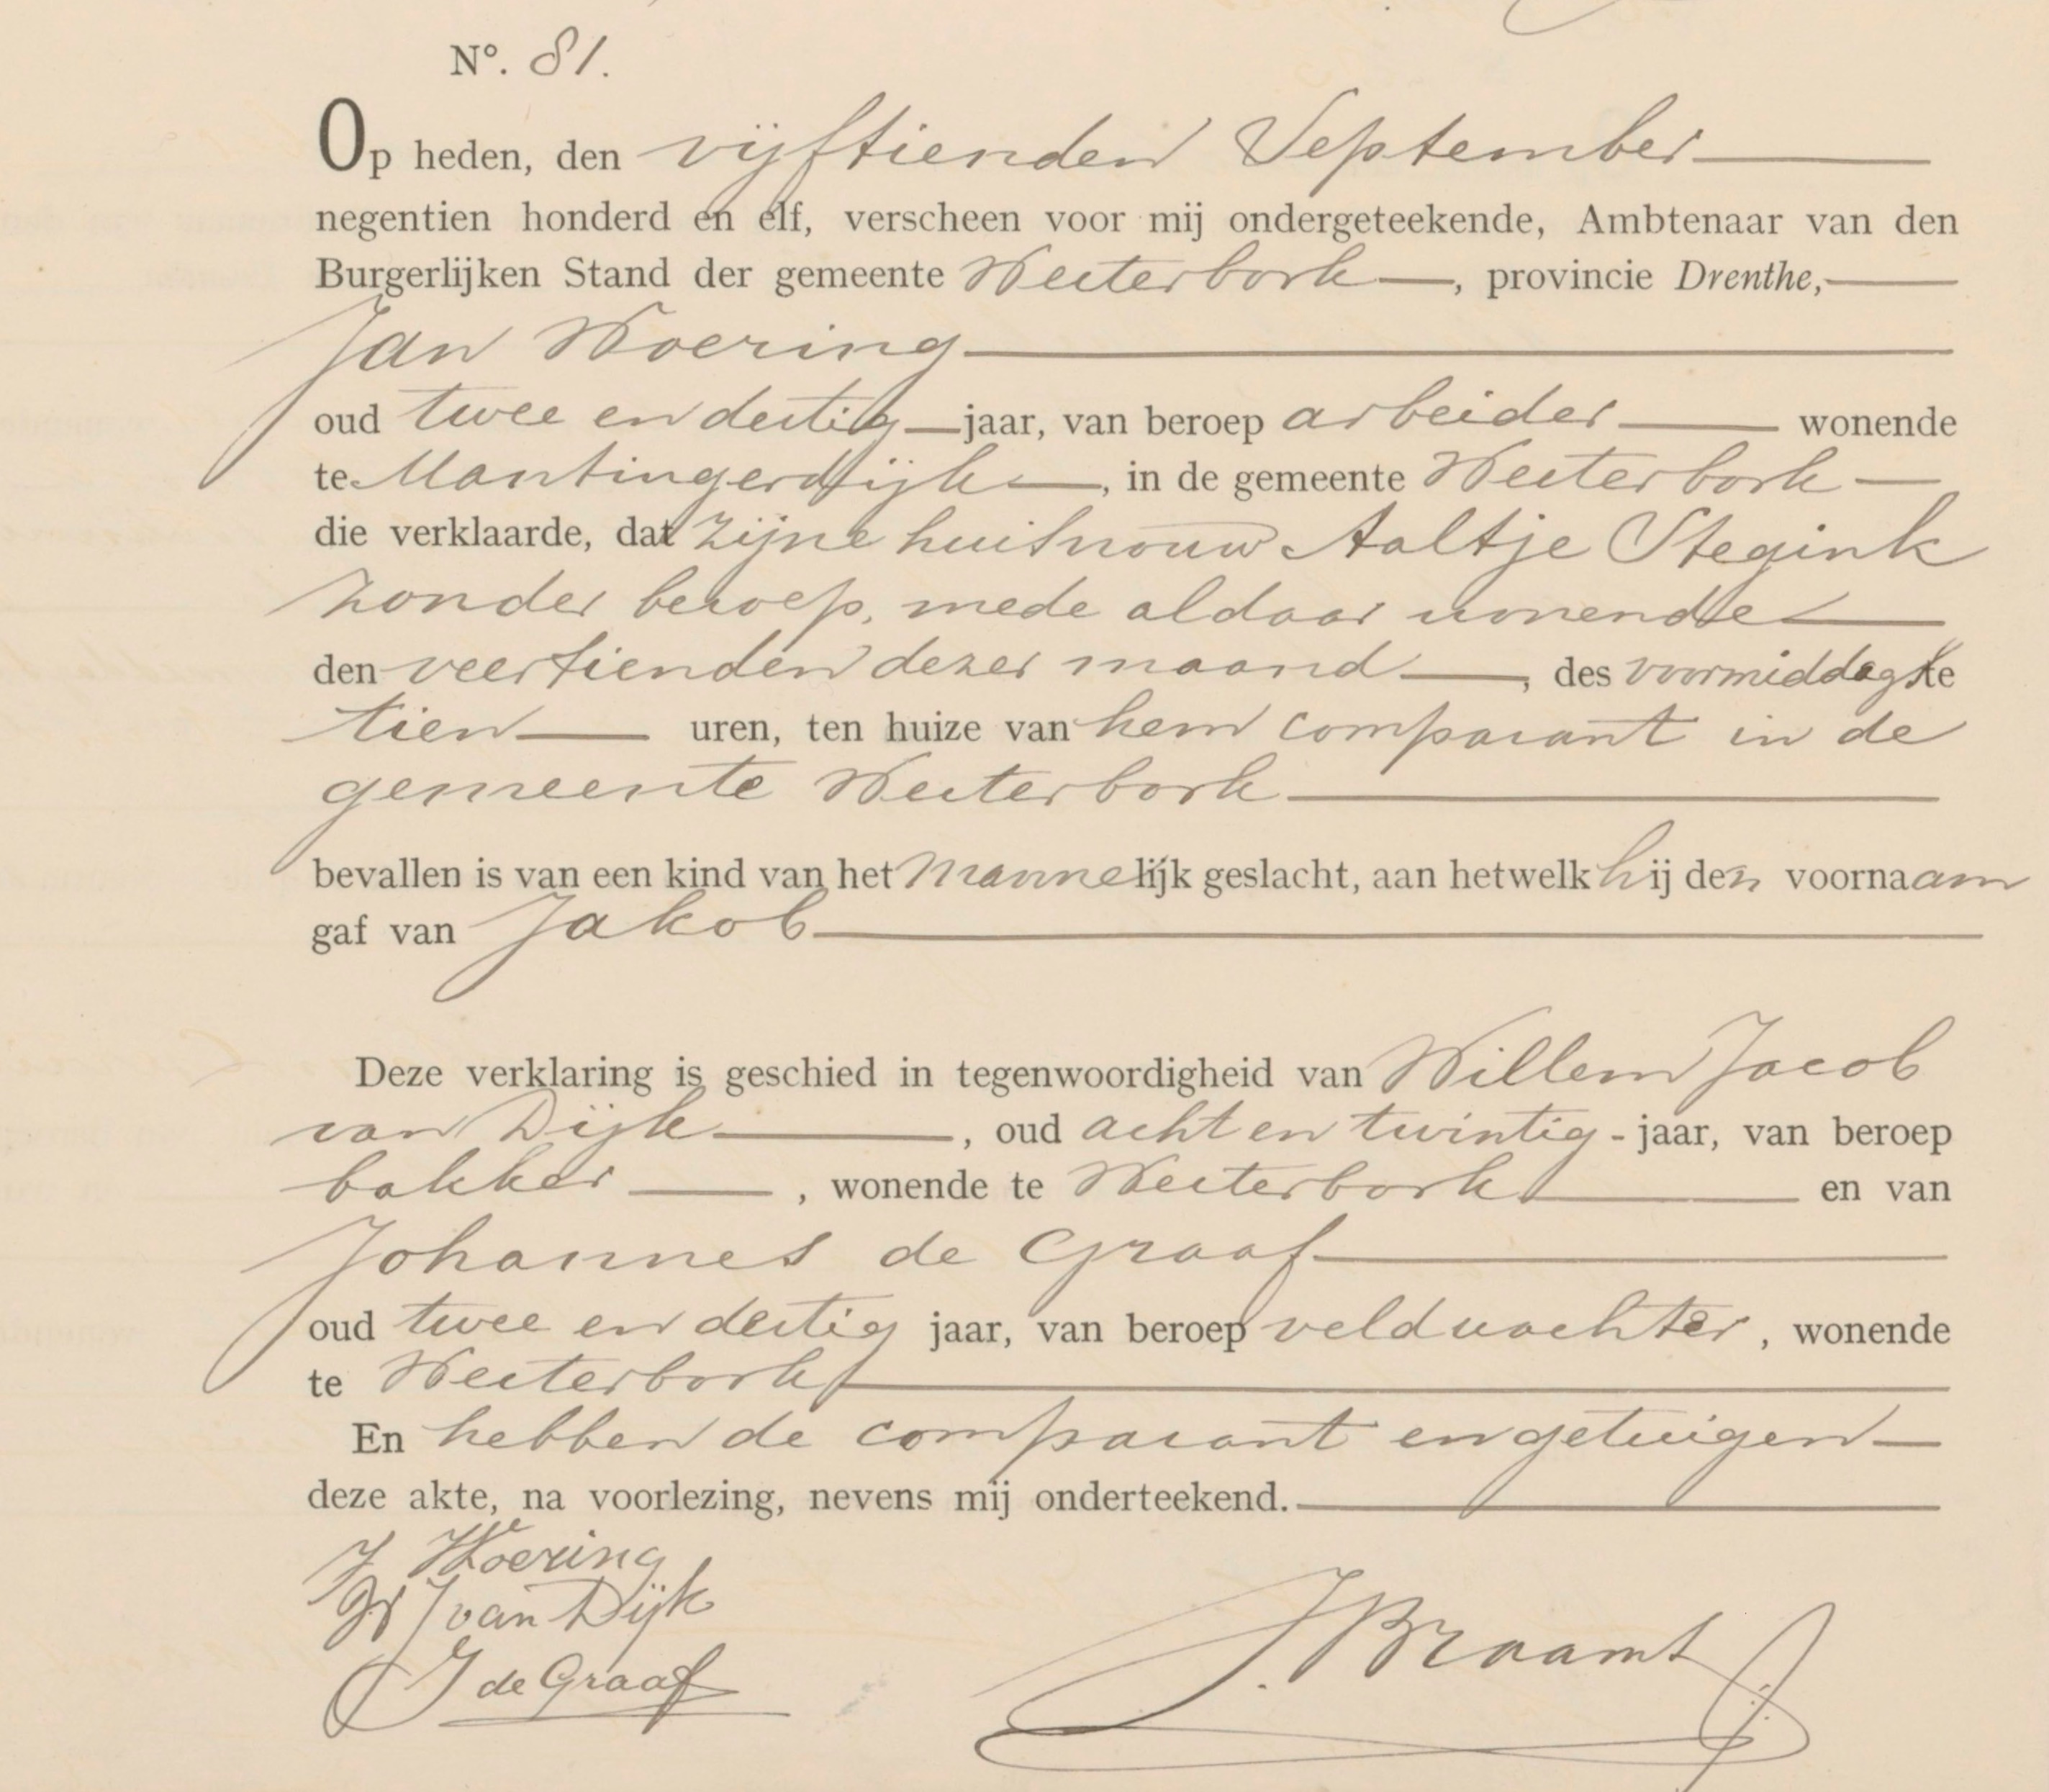 Nº. 81.
Op heden, den vijftienden September
negentien honderd en elf, verscheen voor mij ondergeteekende, Ambtenaar van den
Burgerlijken Stand der gemeente Westerbork, provincie Drenthe,
Jan Woering
oud twee en dertig jaar, van beroep arbeider wonende
te Mantingerdijk, in de gemeente Westerbork
die verklaarde, dat zijne huisvrouw Aaltje Stegink
zonder beroep, mede aldaar wonende
den veertienden dezer maand, des voormiddags te
tien uren, ten huize van hem comparant in de
gemeente Westerbork
bevallen is van een kind van het mannelijk geslacht, aan hetwelk hij den voornaam
gaf van Jakob
Deze verklaring is geschied in tegenwoordigheid van Willem Jacob
van Dijk, oud acht en twintig - jaar, van beroep
bakker, wonende te Westerbork en van
Johannes de Graaf
oud twee en dertig jaar, van beroep veldwachter, wonende
te Westerbork
En hebben de comparant en getuigen
deze akte, na voorlezing, nevens mij onderteekend.
J Woering
W J van Dijk
J de Graaf